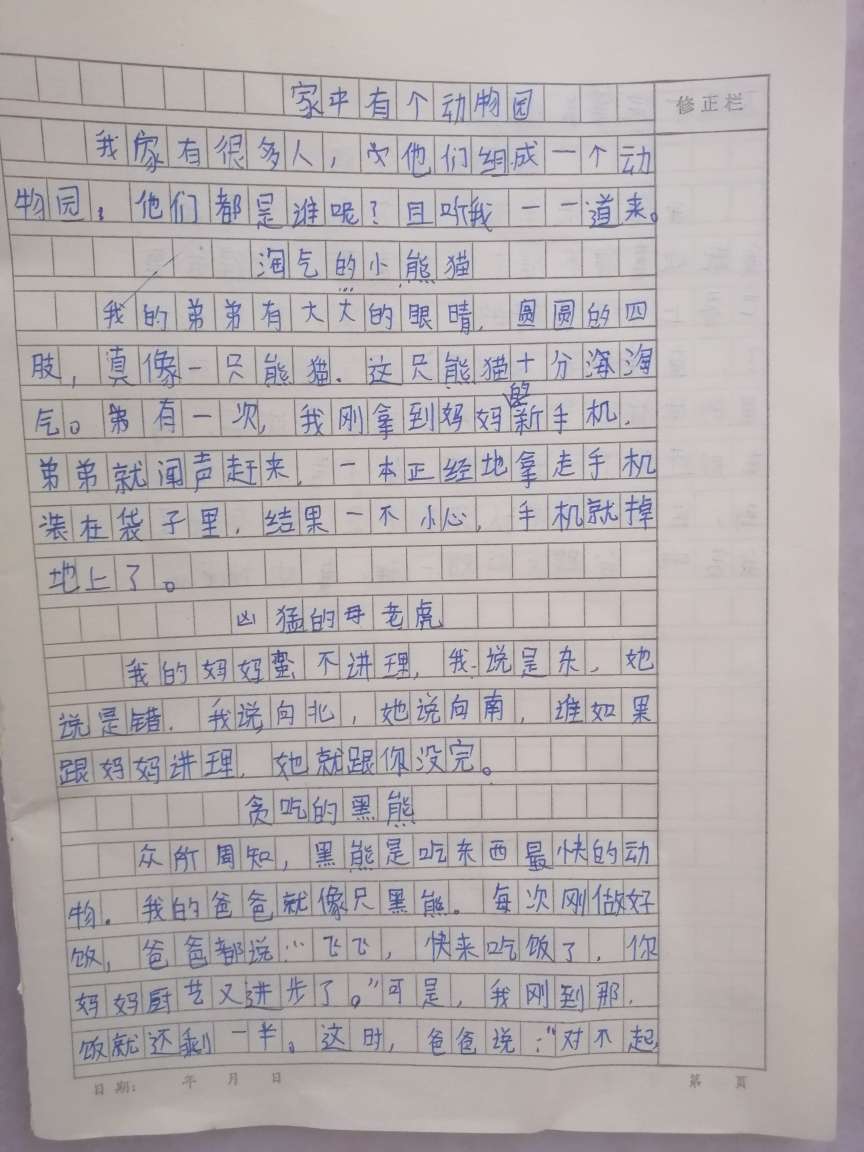 家中有个动物园
修正栏
我家有很多人，他们组成一个动
物园，他们都是谁呢？且听我一一道来。
淘气的小熊猫
我的弟弟有大大的眼睛，圆圆的四
肢，真像一只熊猫．这只熊猫十分淘淘
气。弟有一次，我刚拿到妈妈的新手机．
弟弟就闻声赶来，一本正经地拿走手机
装在袋子里．结果一不小心，手机就掉
地上了。
凶猛的母老虎
我的妈妈蛮不讲理，我说是东，她
说是错．我说向北，她说向南，谁如果
跟妈妈讲理，她就跟你没完。
贪吃的黑熊
众所周知，黑熊是吃东西最快的动
物．我的爸爸就像只黑熊。每次刚做好
饭，爸爸都说：“飞飞，快来吃饭了，你
妈妈厨艺又进步了。”可是，我刚到那．
饭就还剩一半。这时，爸爸说：“对不起，
日期： 年 月 日
第 页